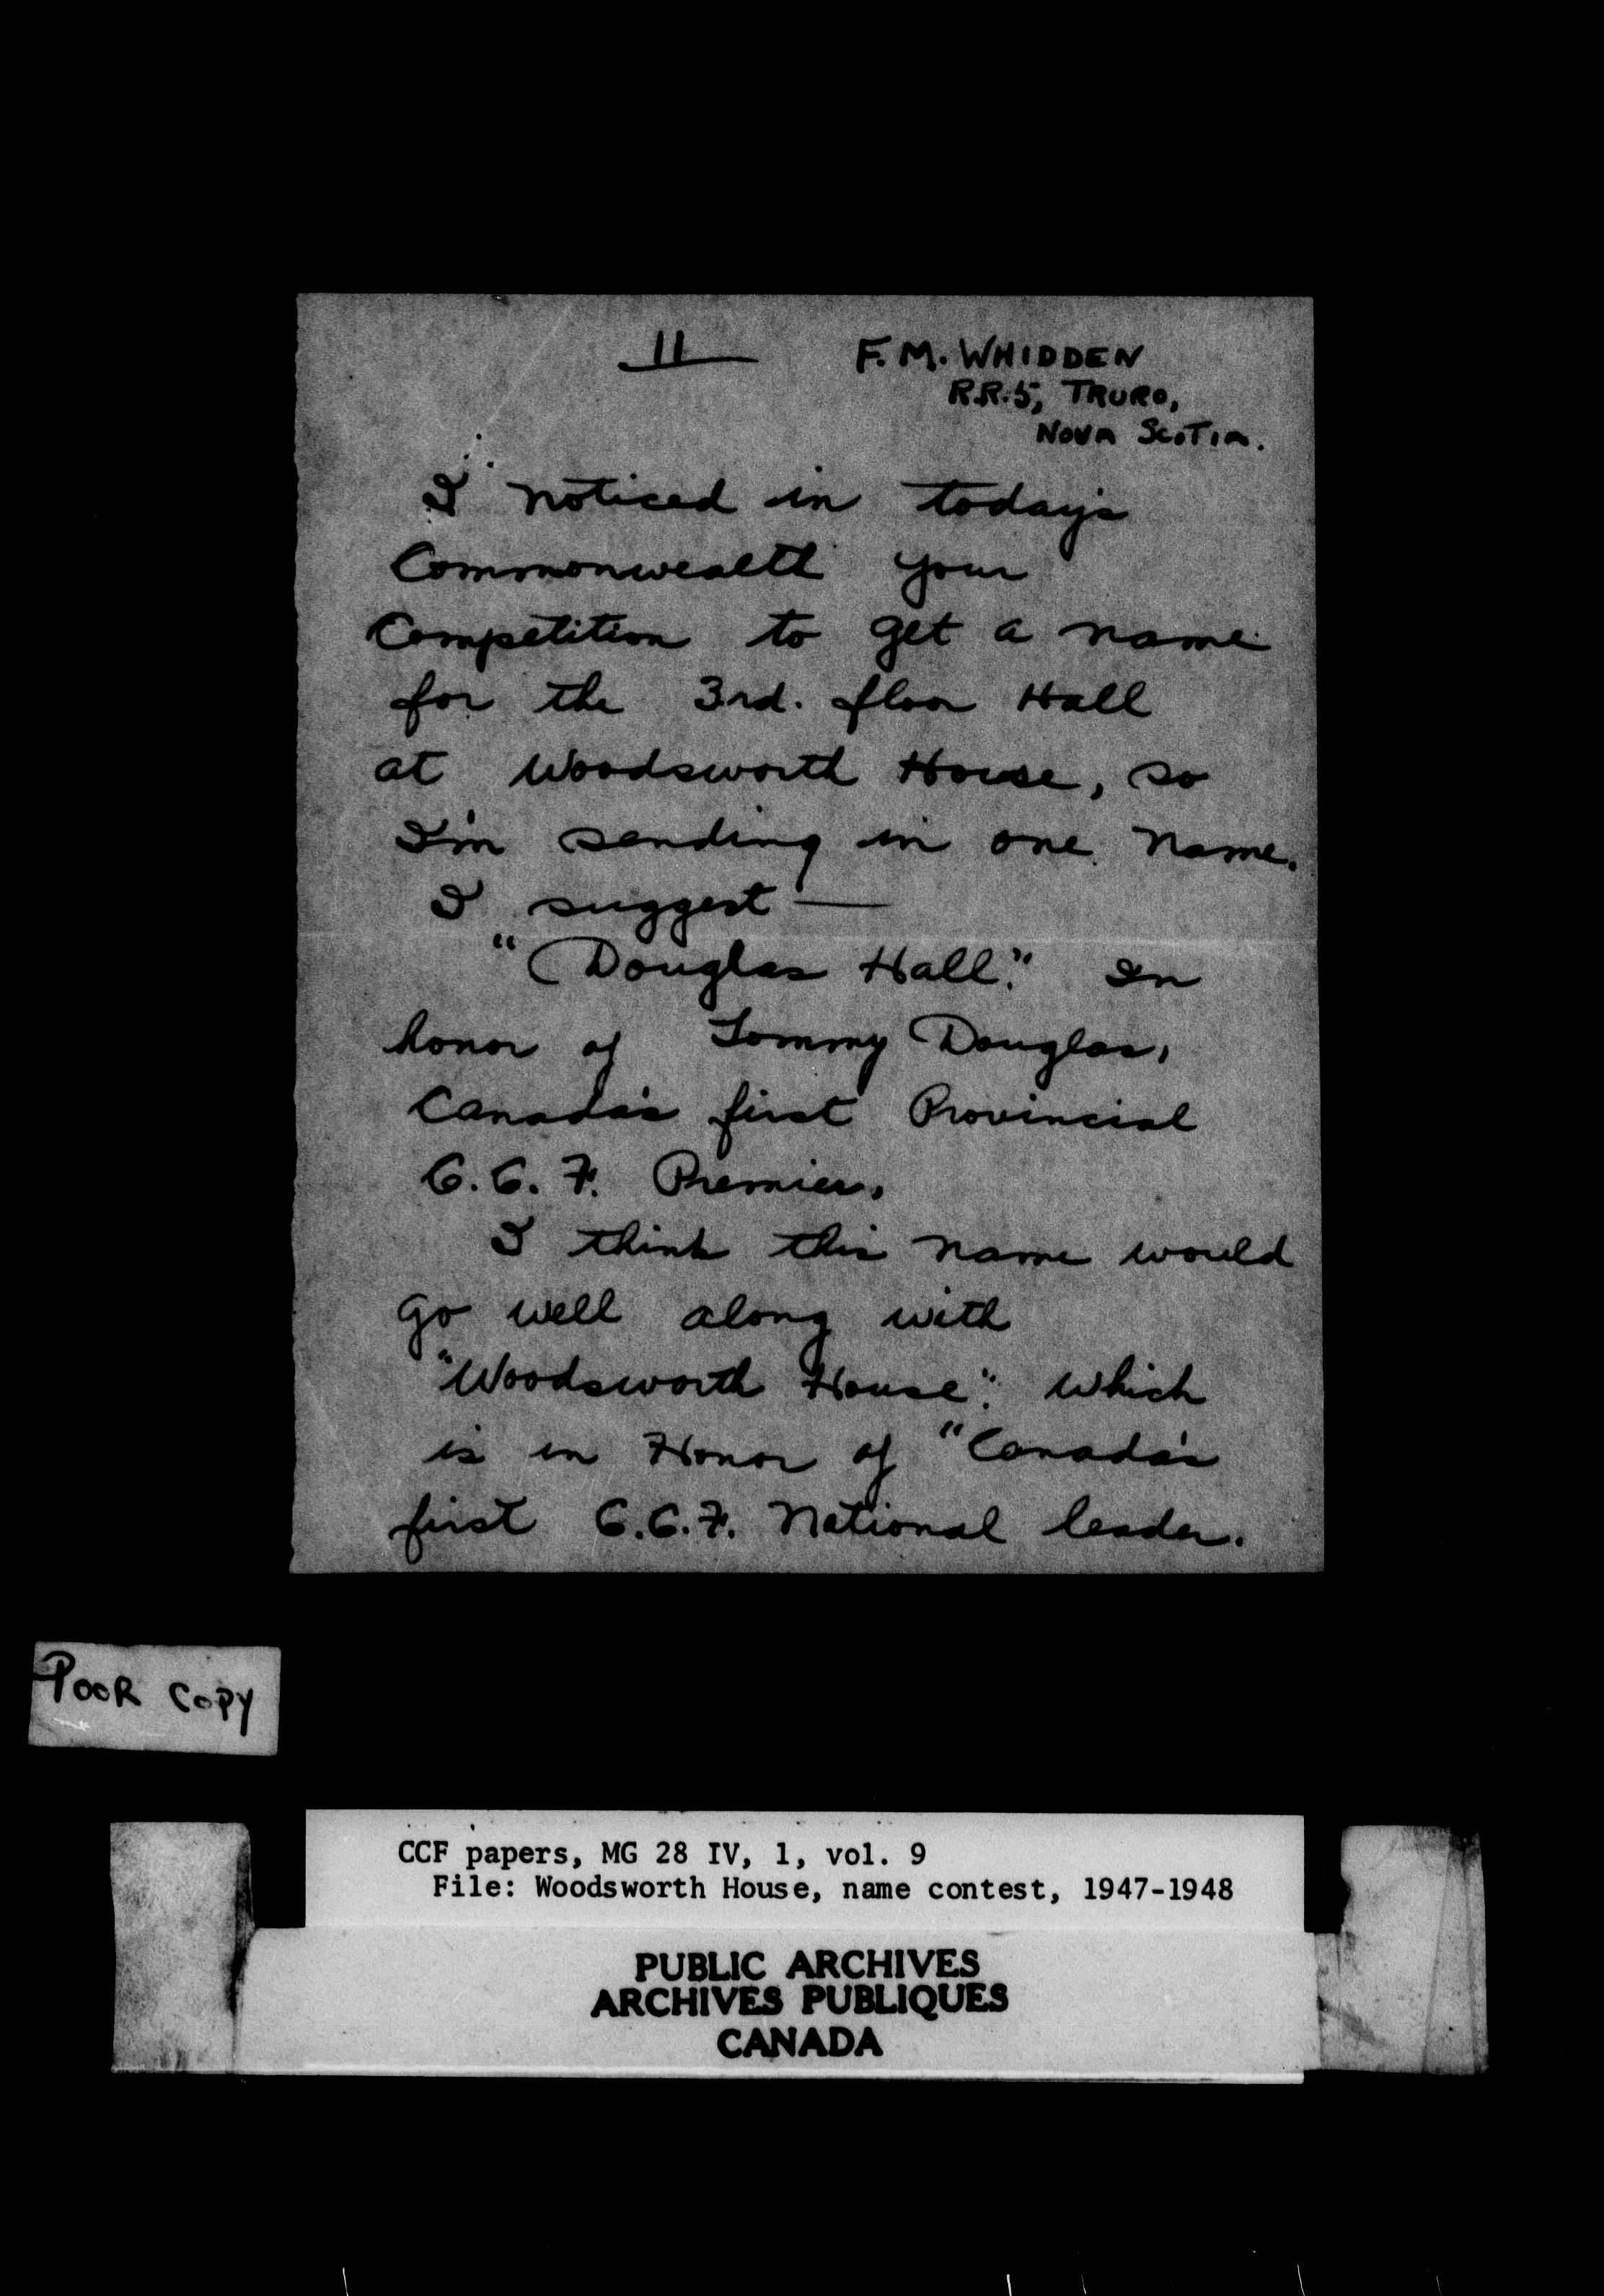 11
F. M. WHIDDEN
R.R. 5, TRURO,
NOVA SCOTIA.
I noticed in today's
Commonwealth your
Competition to get a name
for the 3rd. floor Hall
at Woodsworth House, so
I'm sending in one name.
I suggest —
"Douglas Hall." In
honor of Tommy Douglas,
Canada's first Provincial
C.C.F. Premier.
I think this name would
go well along with
"Woodsworth House". which
is in Honor of "Canada's
first C.C.F. National leader.
POOR COPY
CCF papers, MG 28 IV, 1, vol. 9
File: Woodsworth House, name contest, 1947-1948
PUBLIC ARCHIVES
ARCHIVES PUBLIQUES
CANADA